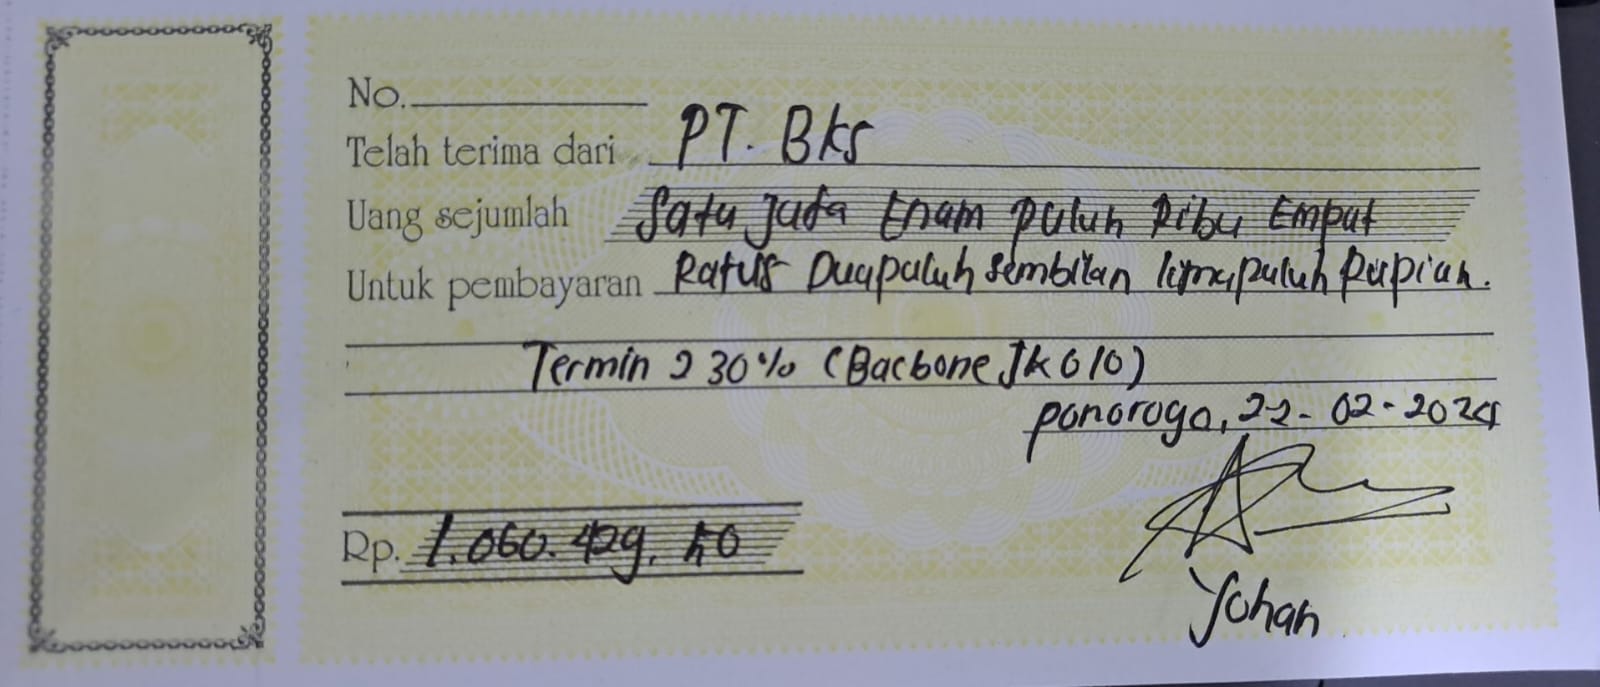 No.
Telah terima dari PT. Bks
Uang sejumlah Satu juta Enam puluh Ribu Empat
Untuk pembayaran Ratus Duapuluh sembilan limapuluh Rupiah.
Termin 2 30% (Bacbone JK 010)
ponorogo, 22-02-2024
Rp. 1.060.429.50
Yohan